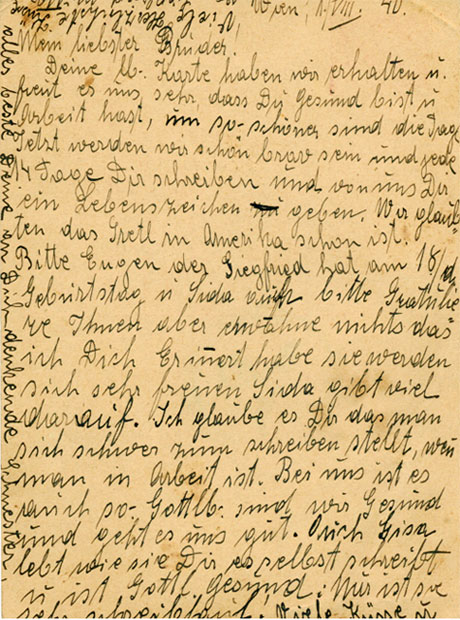 Wien, 1. VIII. 40.
Mein liebster Bruder!
Deine lb. Karte haben wir erhalten u.
freut es uns sehr, dass Du Gesund bist u
Arbeit hast, um so schöner sind die Tage
Jetzt werden wir schon brav sein und jede
14 Tage Dir schreiben und von uns Dir
ein Lebenszeichen zu geben. Wir glaub-
ten das Gretl in Amerika schon ist.
Bitte Eugen der Siegfried hat am 18/
Geburtstag u Sida auch bitte Gratulie
re Ihnen aber erwähne nichts das
ich Dich Erinert habe sie werden
sich sehr freuen Sida gibt viel
darauf. Ich glaube es Dir das man
sich schwer zum schreiben stellt, wen
man in Arbeit ist. Bei uns ist es
auch so. Gottlb. sind wir Gesund
und geht es uns gut. Auch Gisa
lebt wie sie Dir es selbst schreibt
u ist Gottl. gesund. Nur ist sie
sehr schreibfaul. Viele Küsse u
alles beste Deine an Dich denkende Schwester,
Viele